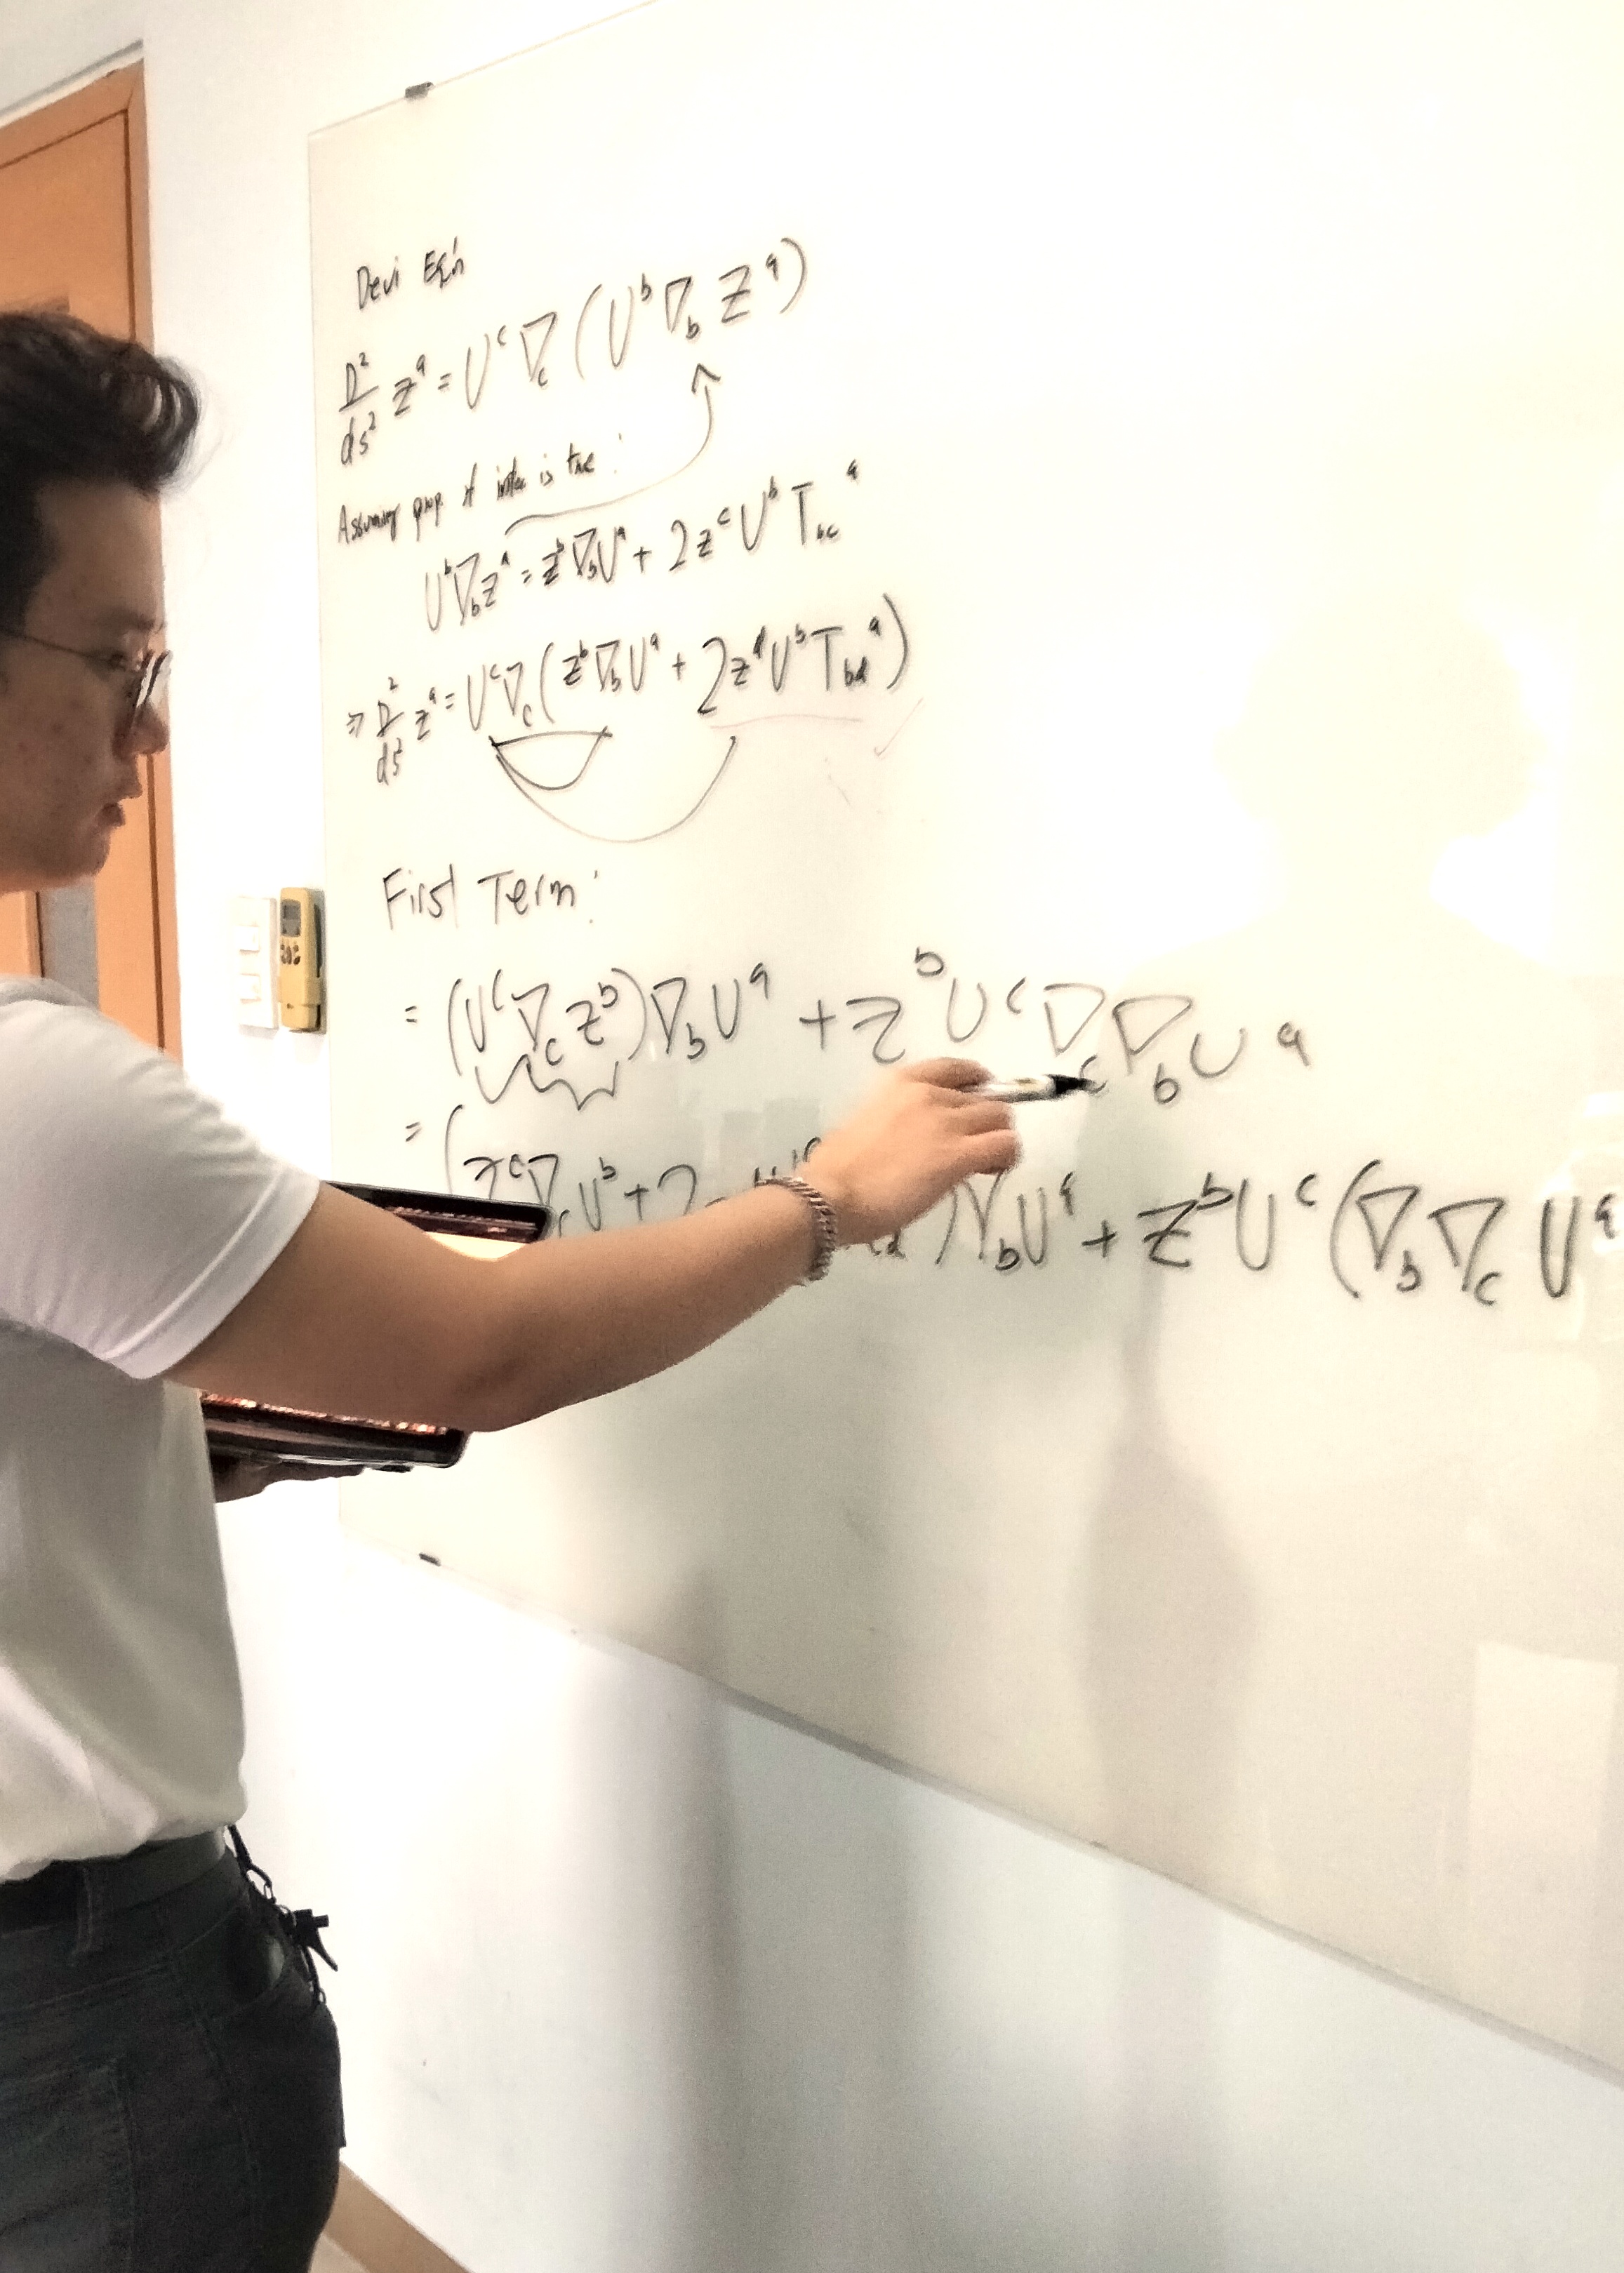 Devi Eq'n
D²/ds² Zᵃ = Uᶜ∇_c (Uᵇ∇_b Zᵃ)
Assuming prop. of index is true :
Uᵇ∇_b Zᵃ = Zᵇ∇_b Uᵃ + 2Zᶜ Uᵇ T_bc ᵃ
⇒ D²/ds² Zᵃ = Uᶜ∇_c (Zᵇ∇_b Uᵃ + 2Zᵈ Uᵇ T_bd ᵃ)
First Term :
= (Uᶜ∇_c Zᵇ)∇_b Uᵃ + Zᵇ Uᶜ ∇_c ∇_b Uᵃ
= (Zᶜ∇_c Uᵇ + 2 )∇_b Uᵃ + Zᵇ Uᶜ (∇_b ∇_c Uᵃ